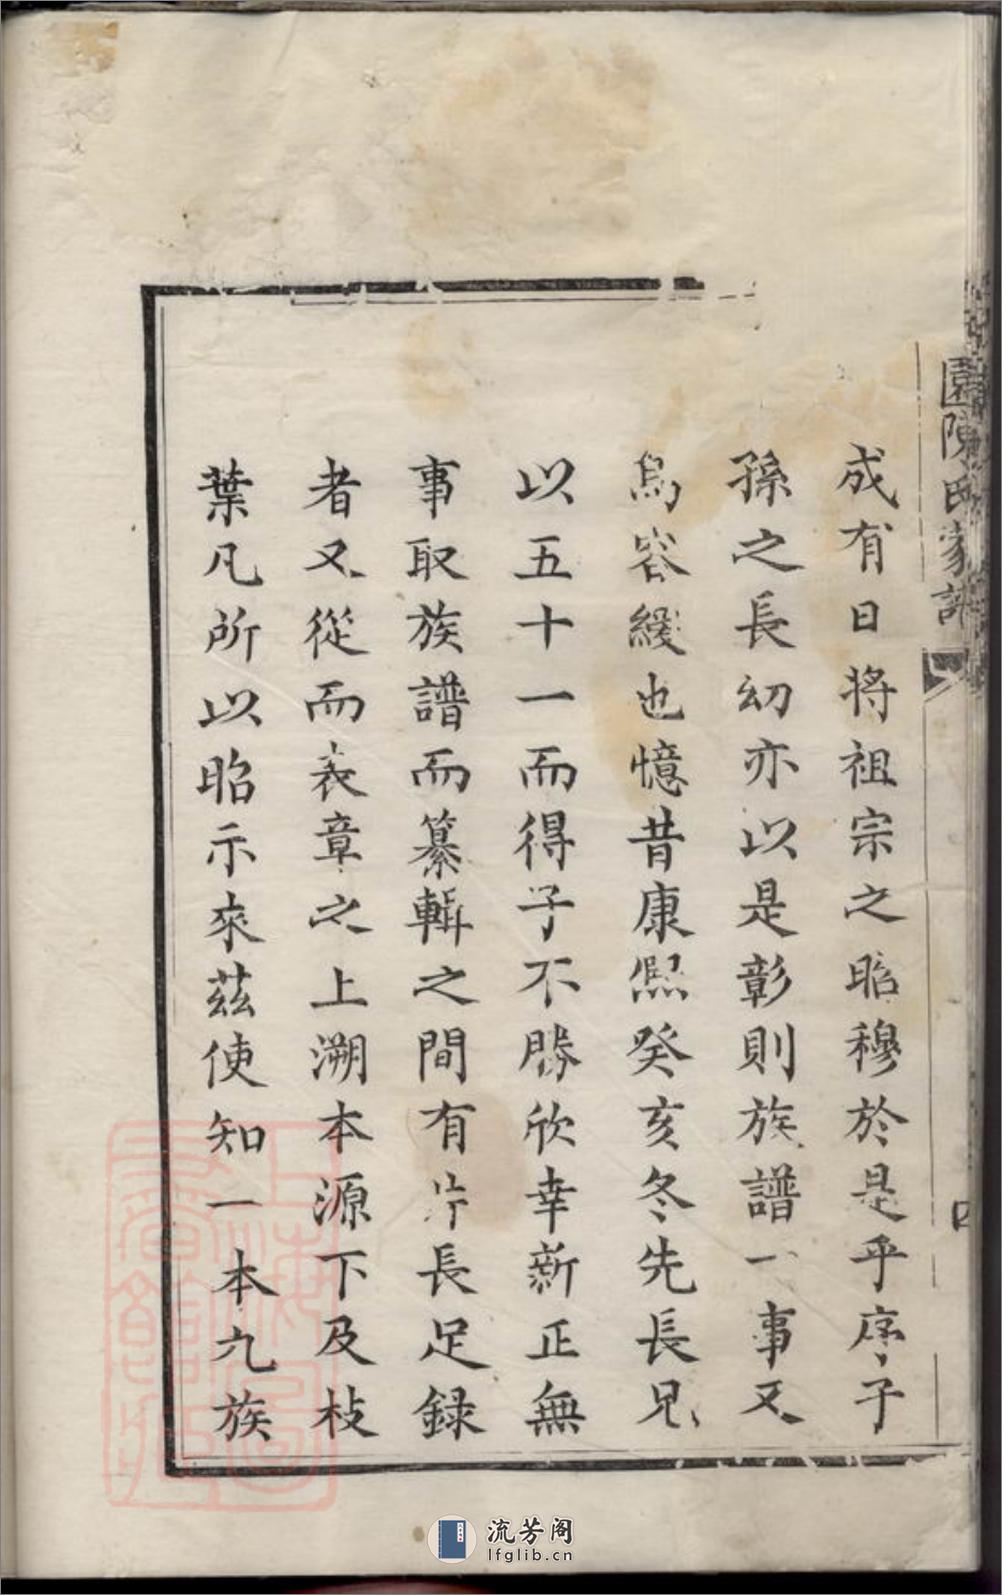 園陳氏家譜
四
成有日將祖宗之昭穆於是乎序子
孫之長幼亦以是彰則族譜一事又
烏容緩也憶昔康熙癸亥冬先長兄
以五十一而得子不勝欣幸新正無
事取族譜而纂輯之間有片長足錄
者又從而表章之上溯本源下及枝
葉凡所以昭示來茲使知一本九族
上海圖書館藏
流芳阁
lfglib.cn